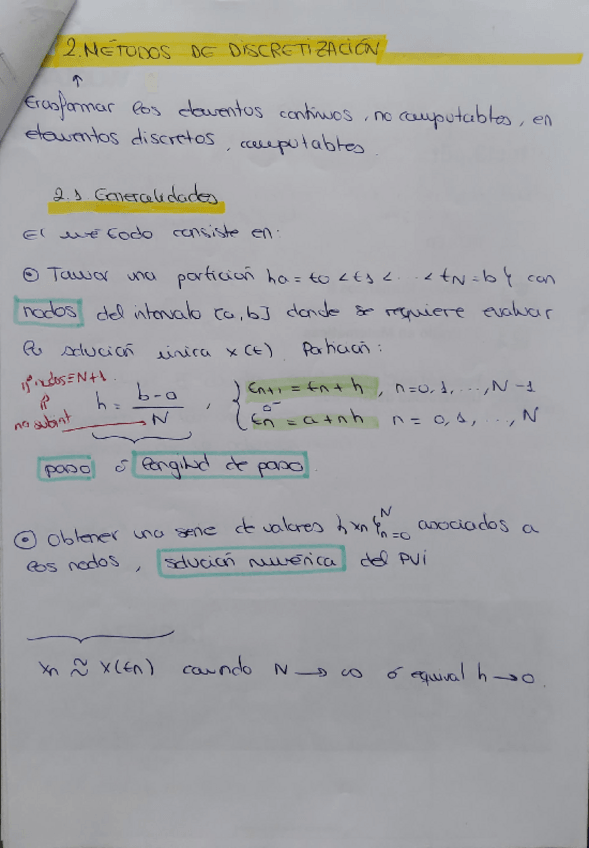 2. MÉTODOS DE DISCRETIZACIÓN
↑
transformar los elementos continuos, no computables, en
elementos discretos, computables.
2.1 Generalidades
El método consiste en:
⊙ Tomar una partición {a = t0 < t1 < ... < tN = b} con
nodos del intervalo [a,b] donde se requiere evaluar
la solución única x(t). Partición:
nº nodos = N+1.
nº subint → h = (b-a)/N , { tn+1 = tn + h , n=0, 1, ..., N-1
ó
tn = a + nh n = 0, 1, ..., N
paso ó longitud de paso.
⊙ Obtener una serie de valores {xn}ᴺn=0 asociados a
los nodos, solución numérica del PVI
xn ≈ x(tn) cuando N → ∞ ó equival h → 0.